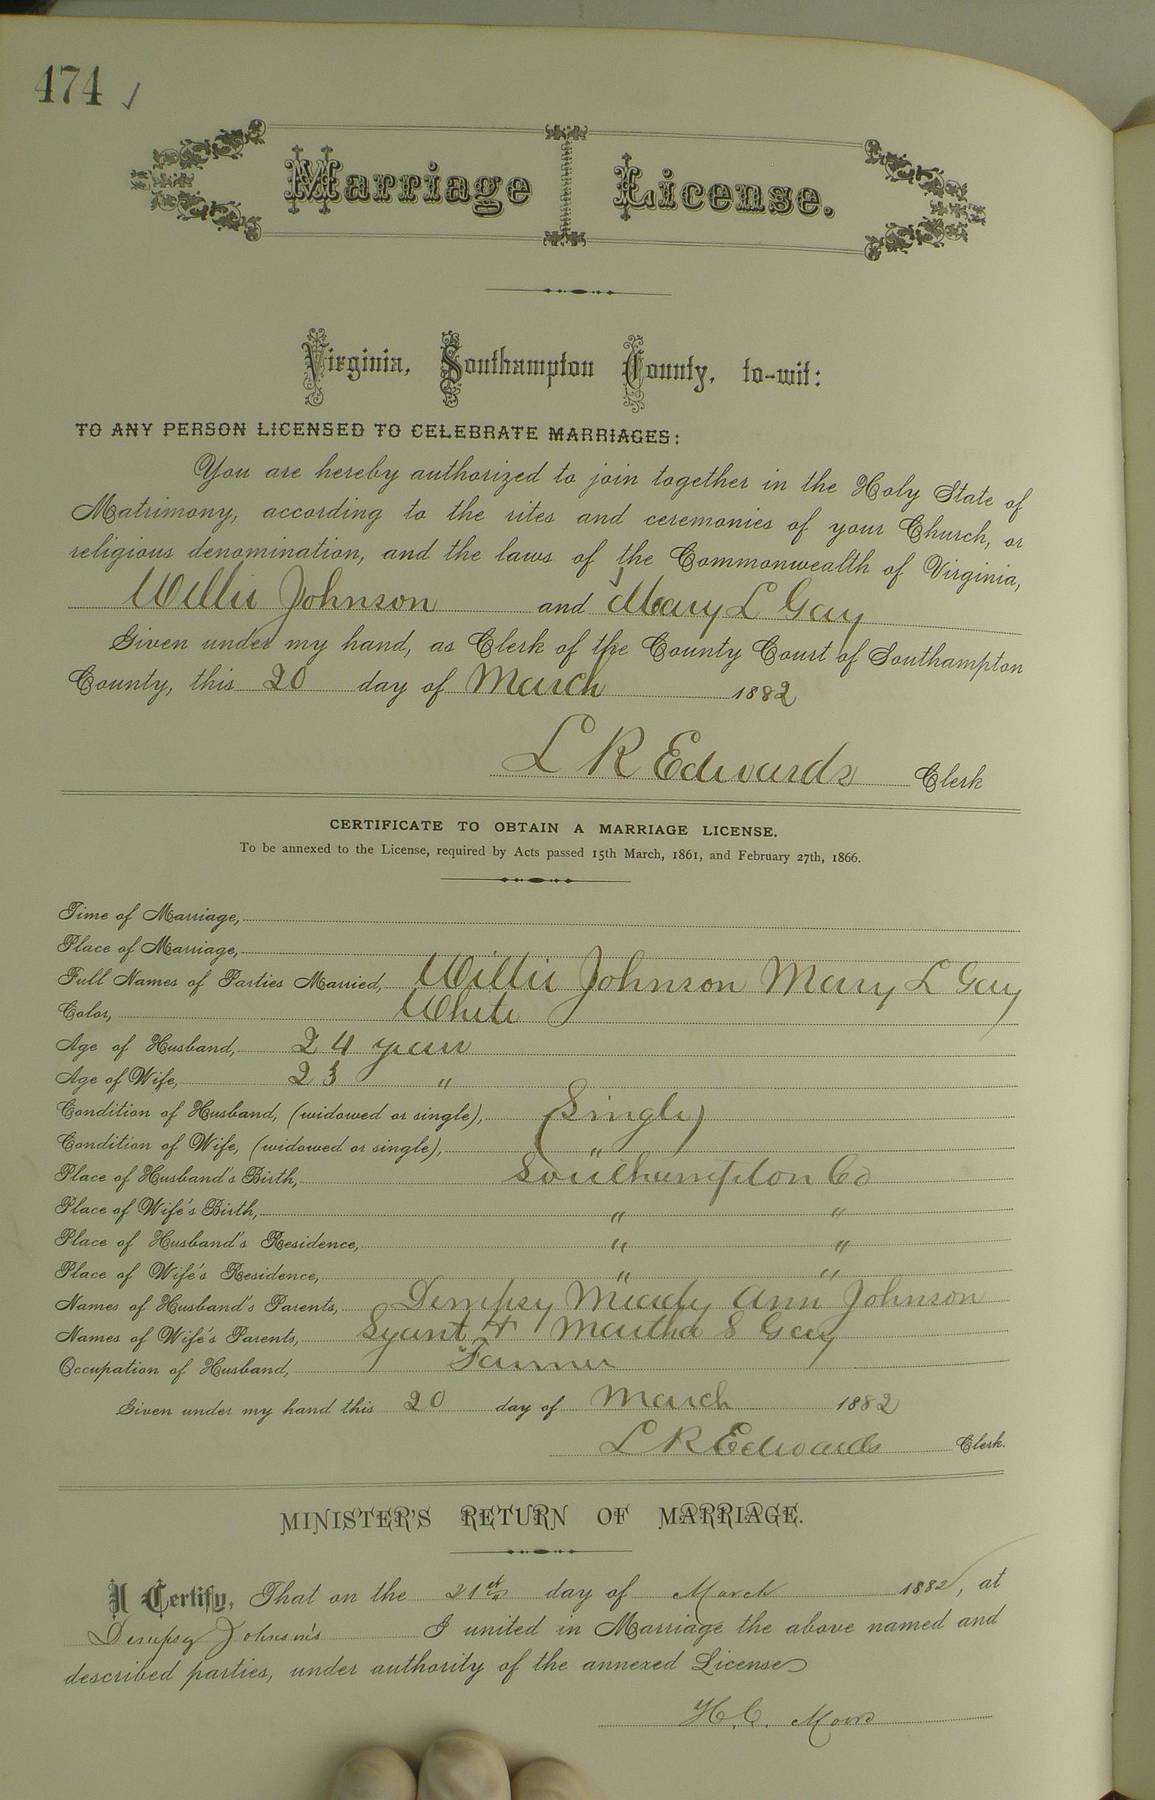 474 ✓
Marriage License.
Virginia, Southampton County, to-wit:
TO ANY PERSON LICENSED TO CELEBRATE MARRIAGES:
You are hereby authorized to join together in the Holy State of
Matrimony, according to the rites and ceremonies of your Church, or
religious denomination, and the laws of the Commonwealth of Virginia,
Willis Johnson and Mary L Gay
Given under my hand, as Clerk of the County Court of Southampton
County, this 20 day of March 1882
L R Edwards Clerk
CERTIFICATE TO OBTAIN A MARRIAGE LICENSE.
To be annexed to the License, required by Acts passed 15th March, 1861, and February 27th, 1866.
Time of Marriage,
Place of Marriage,
Full Names of Parties Married, Willis Johnson Mary L Gay
Color, White
Age of Husband, 24 years
Age of Wife, 23 "
Condition of Husband, (widowed or single), (Single)
Condition of Wife, (widowed or single), "
Place of Husband's Birth, Southampton Co
Place of Wife's Birth, " "
Place of Husband's Residence, " "
Place of Wife's Residence, " "
Names of Husband's Parents, Dempsy Ann Johnson
Names of Wife's Parents, + Martha S Gay
Occupation of Husband, Farmer
Given under my hand this 20 day of March 1882
L R Edwards Clerk.
MINISTER'S RETURN OF MARRIAGE.
I Certify, That on the 21st day of March 1882, at
Dempsy Johnson's I united in Marriage the above named and
described parties, under authority of the annexed License
H. C. Moore